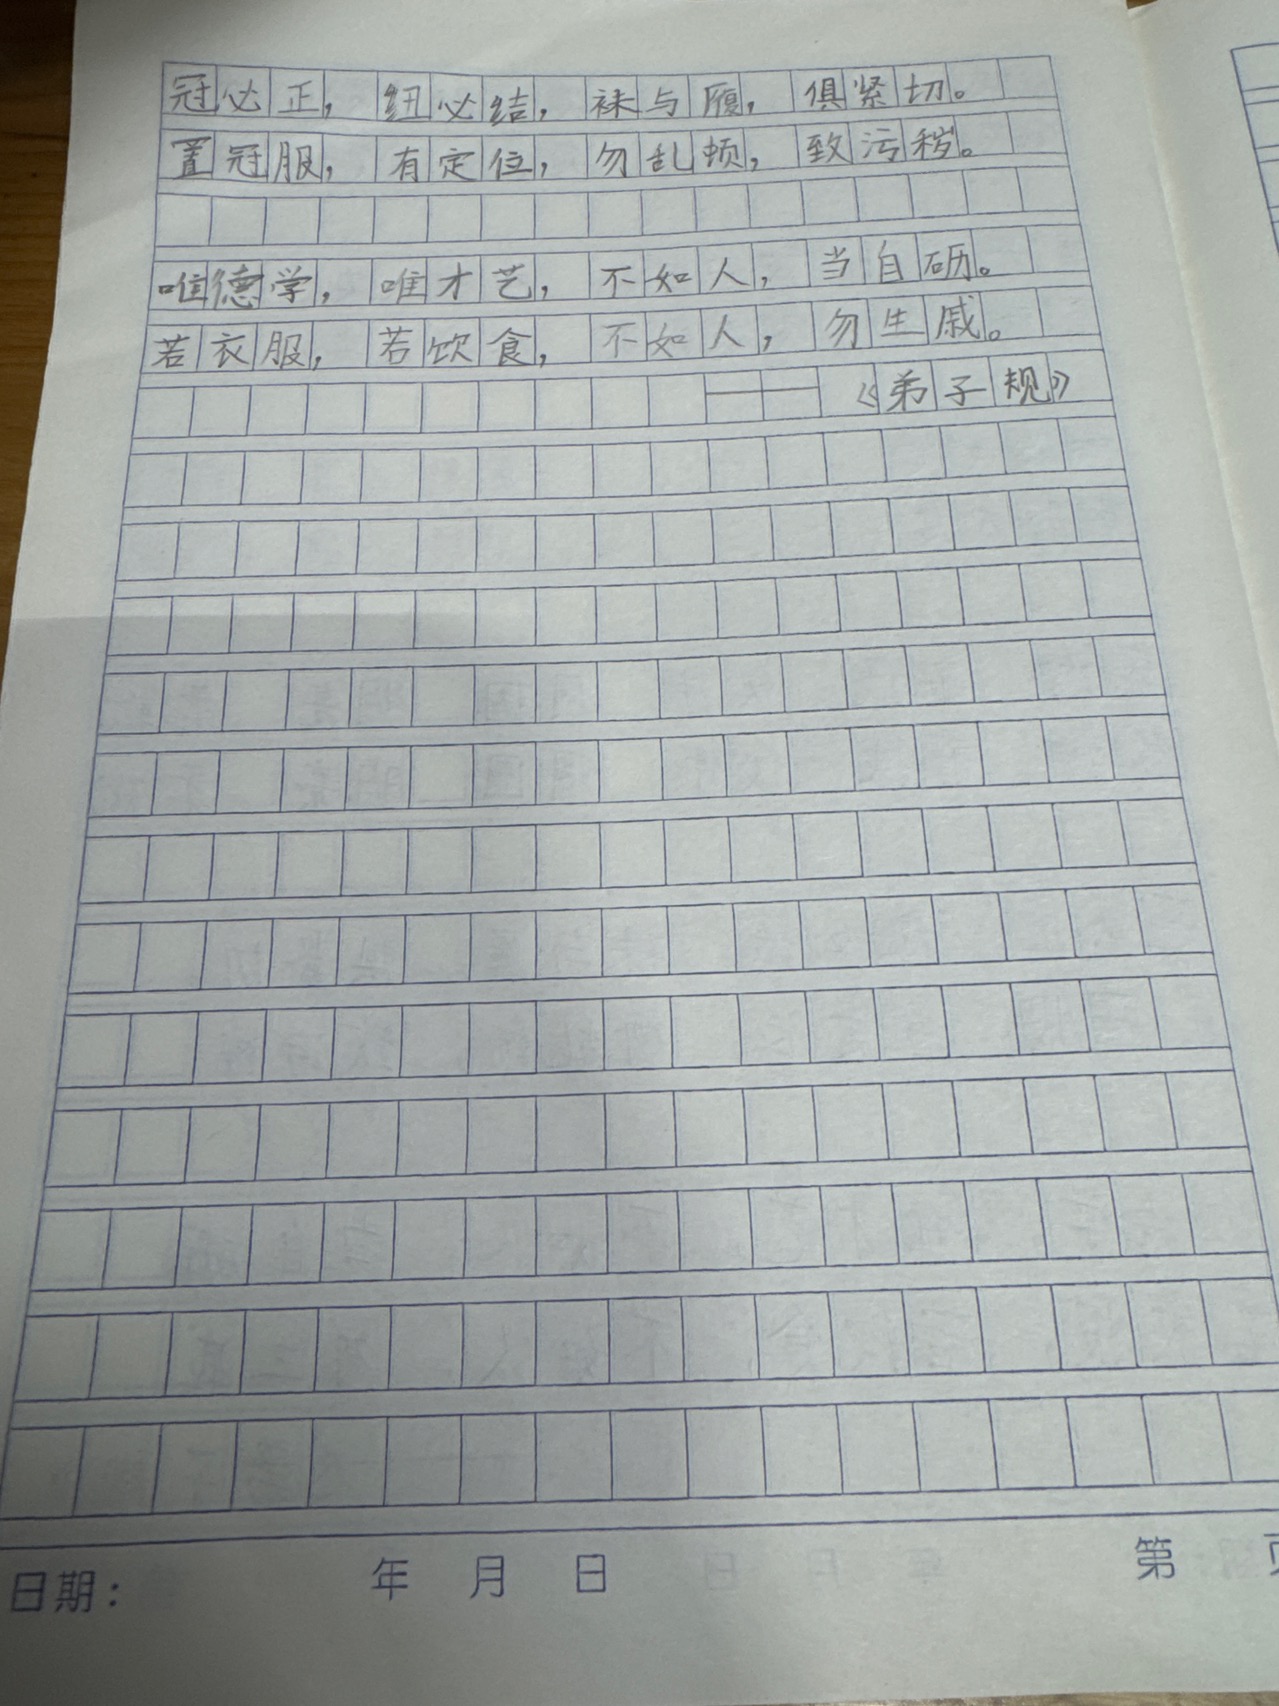 冠必正，纽必结，袜与履，俱紧切。
置冠服，有定位，勿乱顿，致污秽。
唯德学，唯才艺，不如人，当自砺。
若衣服，若饮食，不如人，勿生戚。
——《弟子规》
日期： 年 月 日 第 页